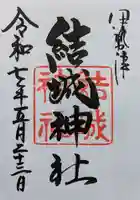 伊勢津
結城神社
結城神社
令和七年五月二十三日